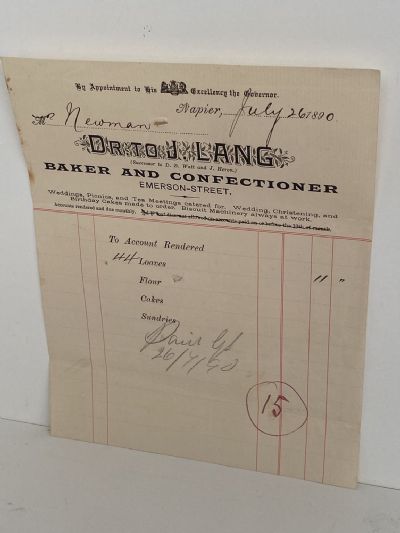 By Appointment to His Excellency the Governor.
Napier, July 26 1890.
Mrs Newman
DR. TO J. LANG
(Successor to D. B. Watt and J. Heron.)
BAKER AND CONFECTIONER
EMERSON-STREET,
Weddings, Picnics, and Tea Meetings catered for. Wedding, Christening, and
Birthday Cakes made to order. Biscuit Machinery always at work.
Accounts rendered and due monthly.
To Account Rendered
44 Loaves 11 "
Flour
Cakes
Sundries
Paid
26/7/90
15